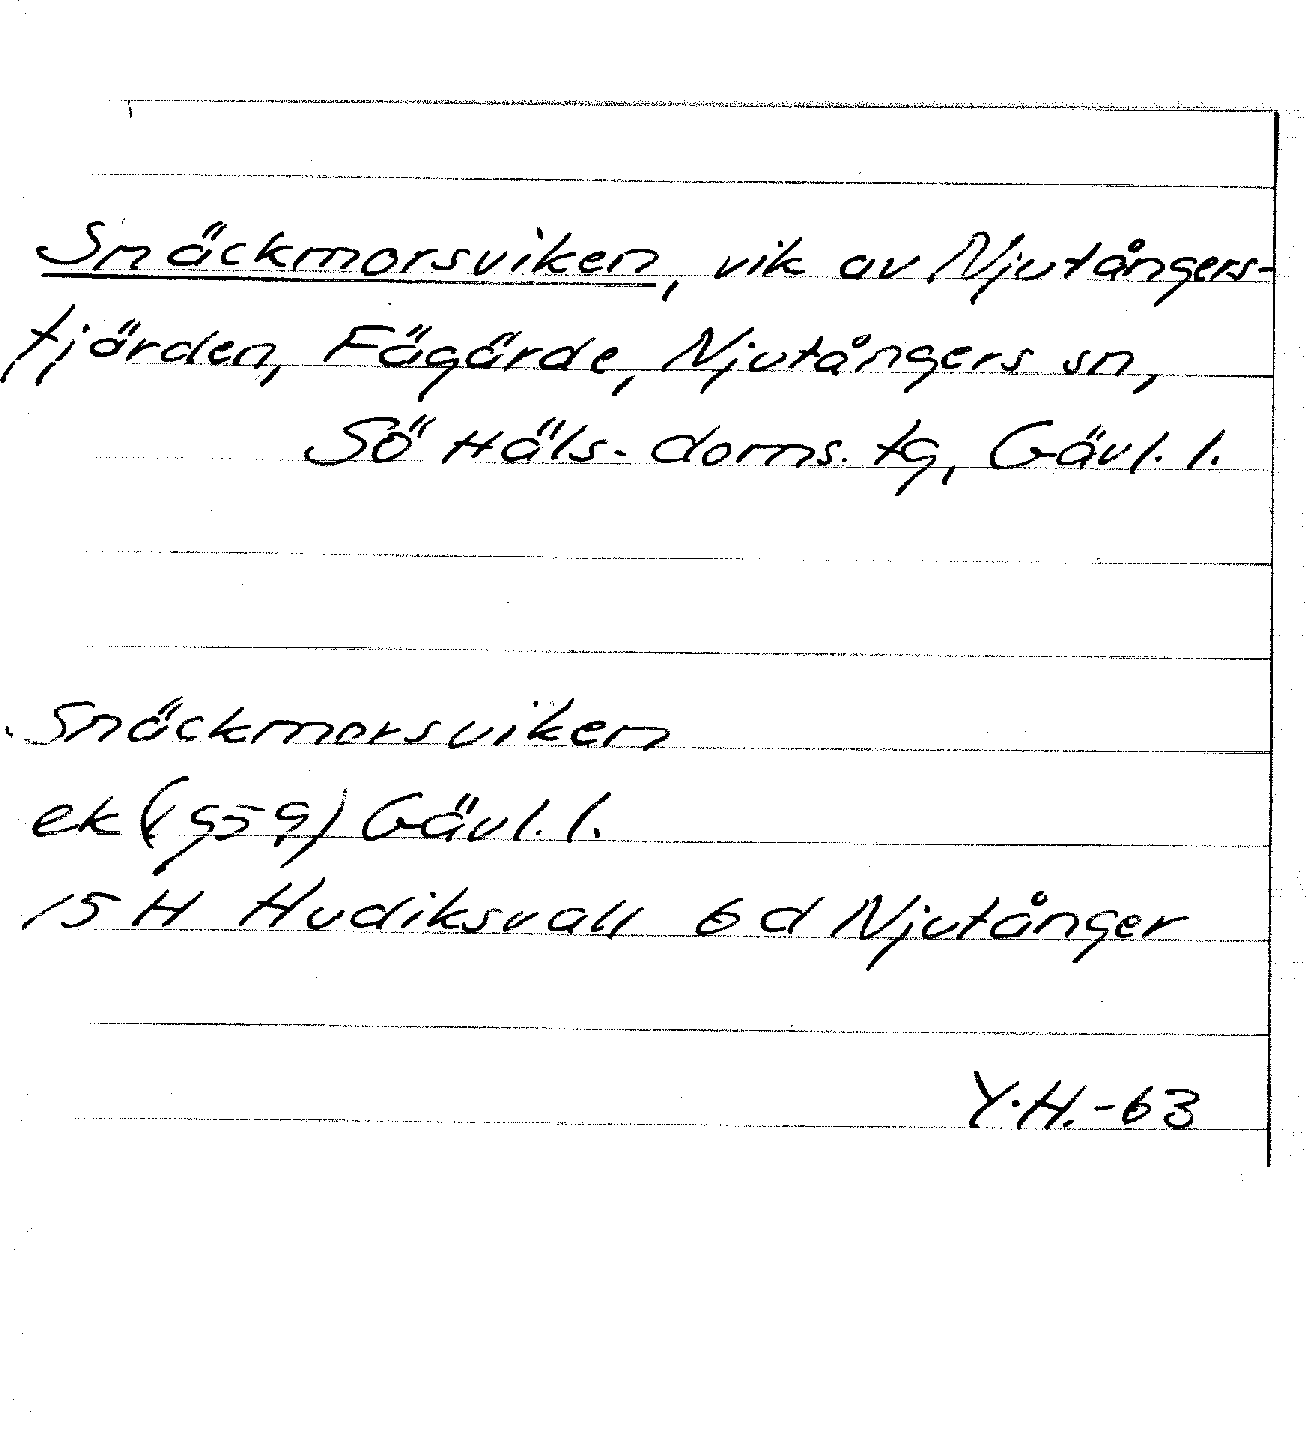 Snäckmorsviken, vik av Njutångers-
fjärden, Fägärde, Njutångers sn,
Sö Häls. doms. tg, Gävl. l.
Snäckmorsviken
ek (1959) Gävl. l.
15 H Hudiksvall 6 d Njutånger
Y.H.-63